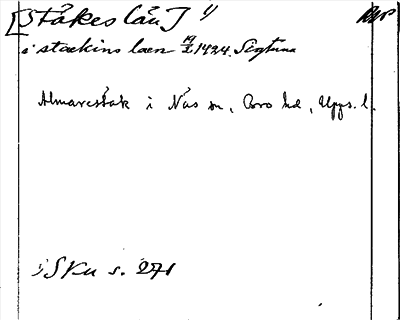 [Ståkes län] 1)
i stækins læn 14/2 1424. Sigtuna
Almarestäk i Näs sn, Bro hd, Upps. l.
1) SRu s. 271